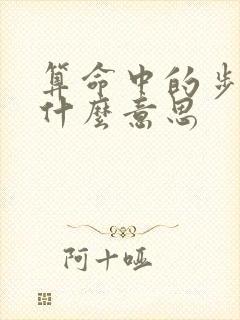 算命中的步
什麼意思
阿十哑